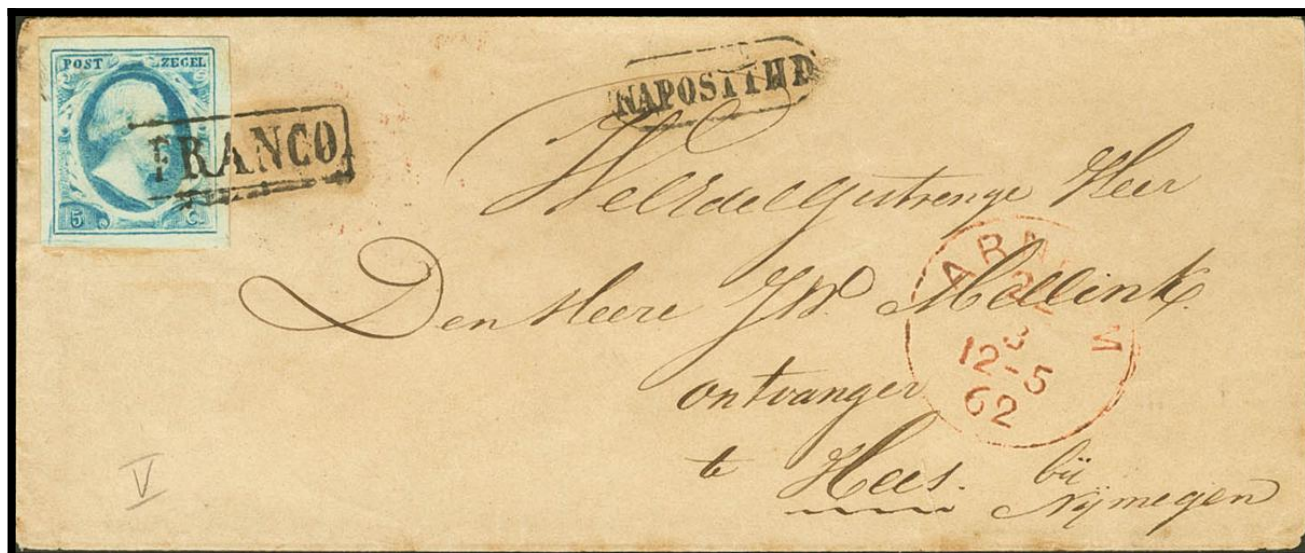 POST ZEGEL
5 C.
FRANCO
NAPOSTTIJD
WelEdelGestrenge Heer
Den Heere J.W. Mellink
ontvanger
te Hees. bij
Nijmegen
ARNHEM
22
3
12-5
62
V